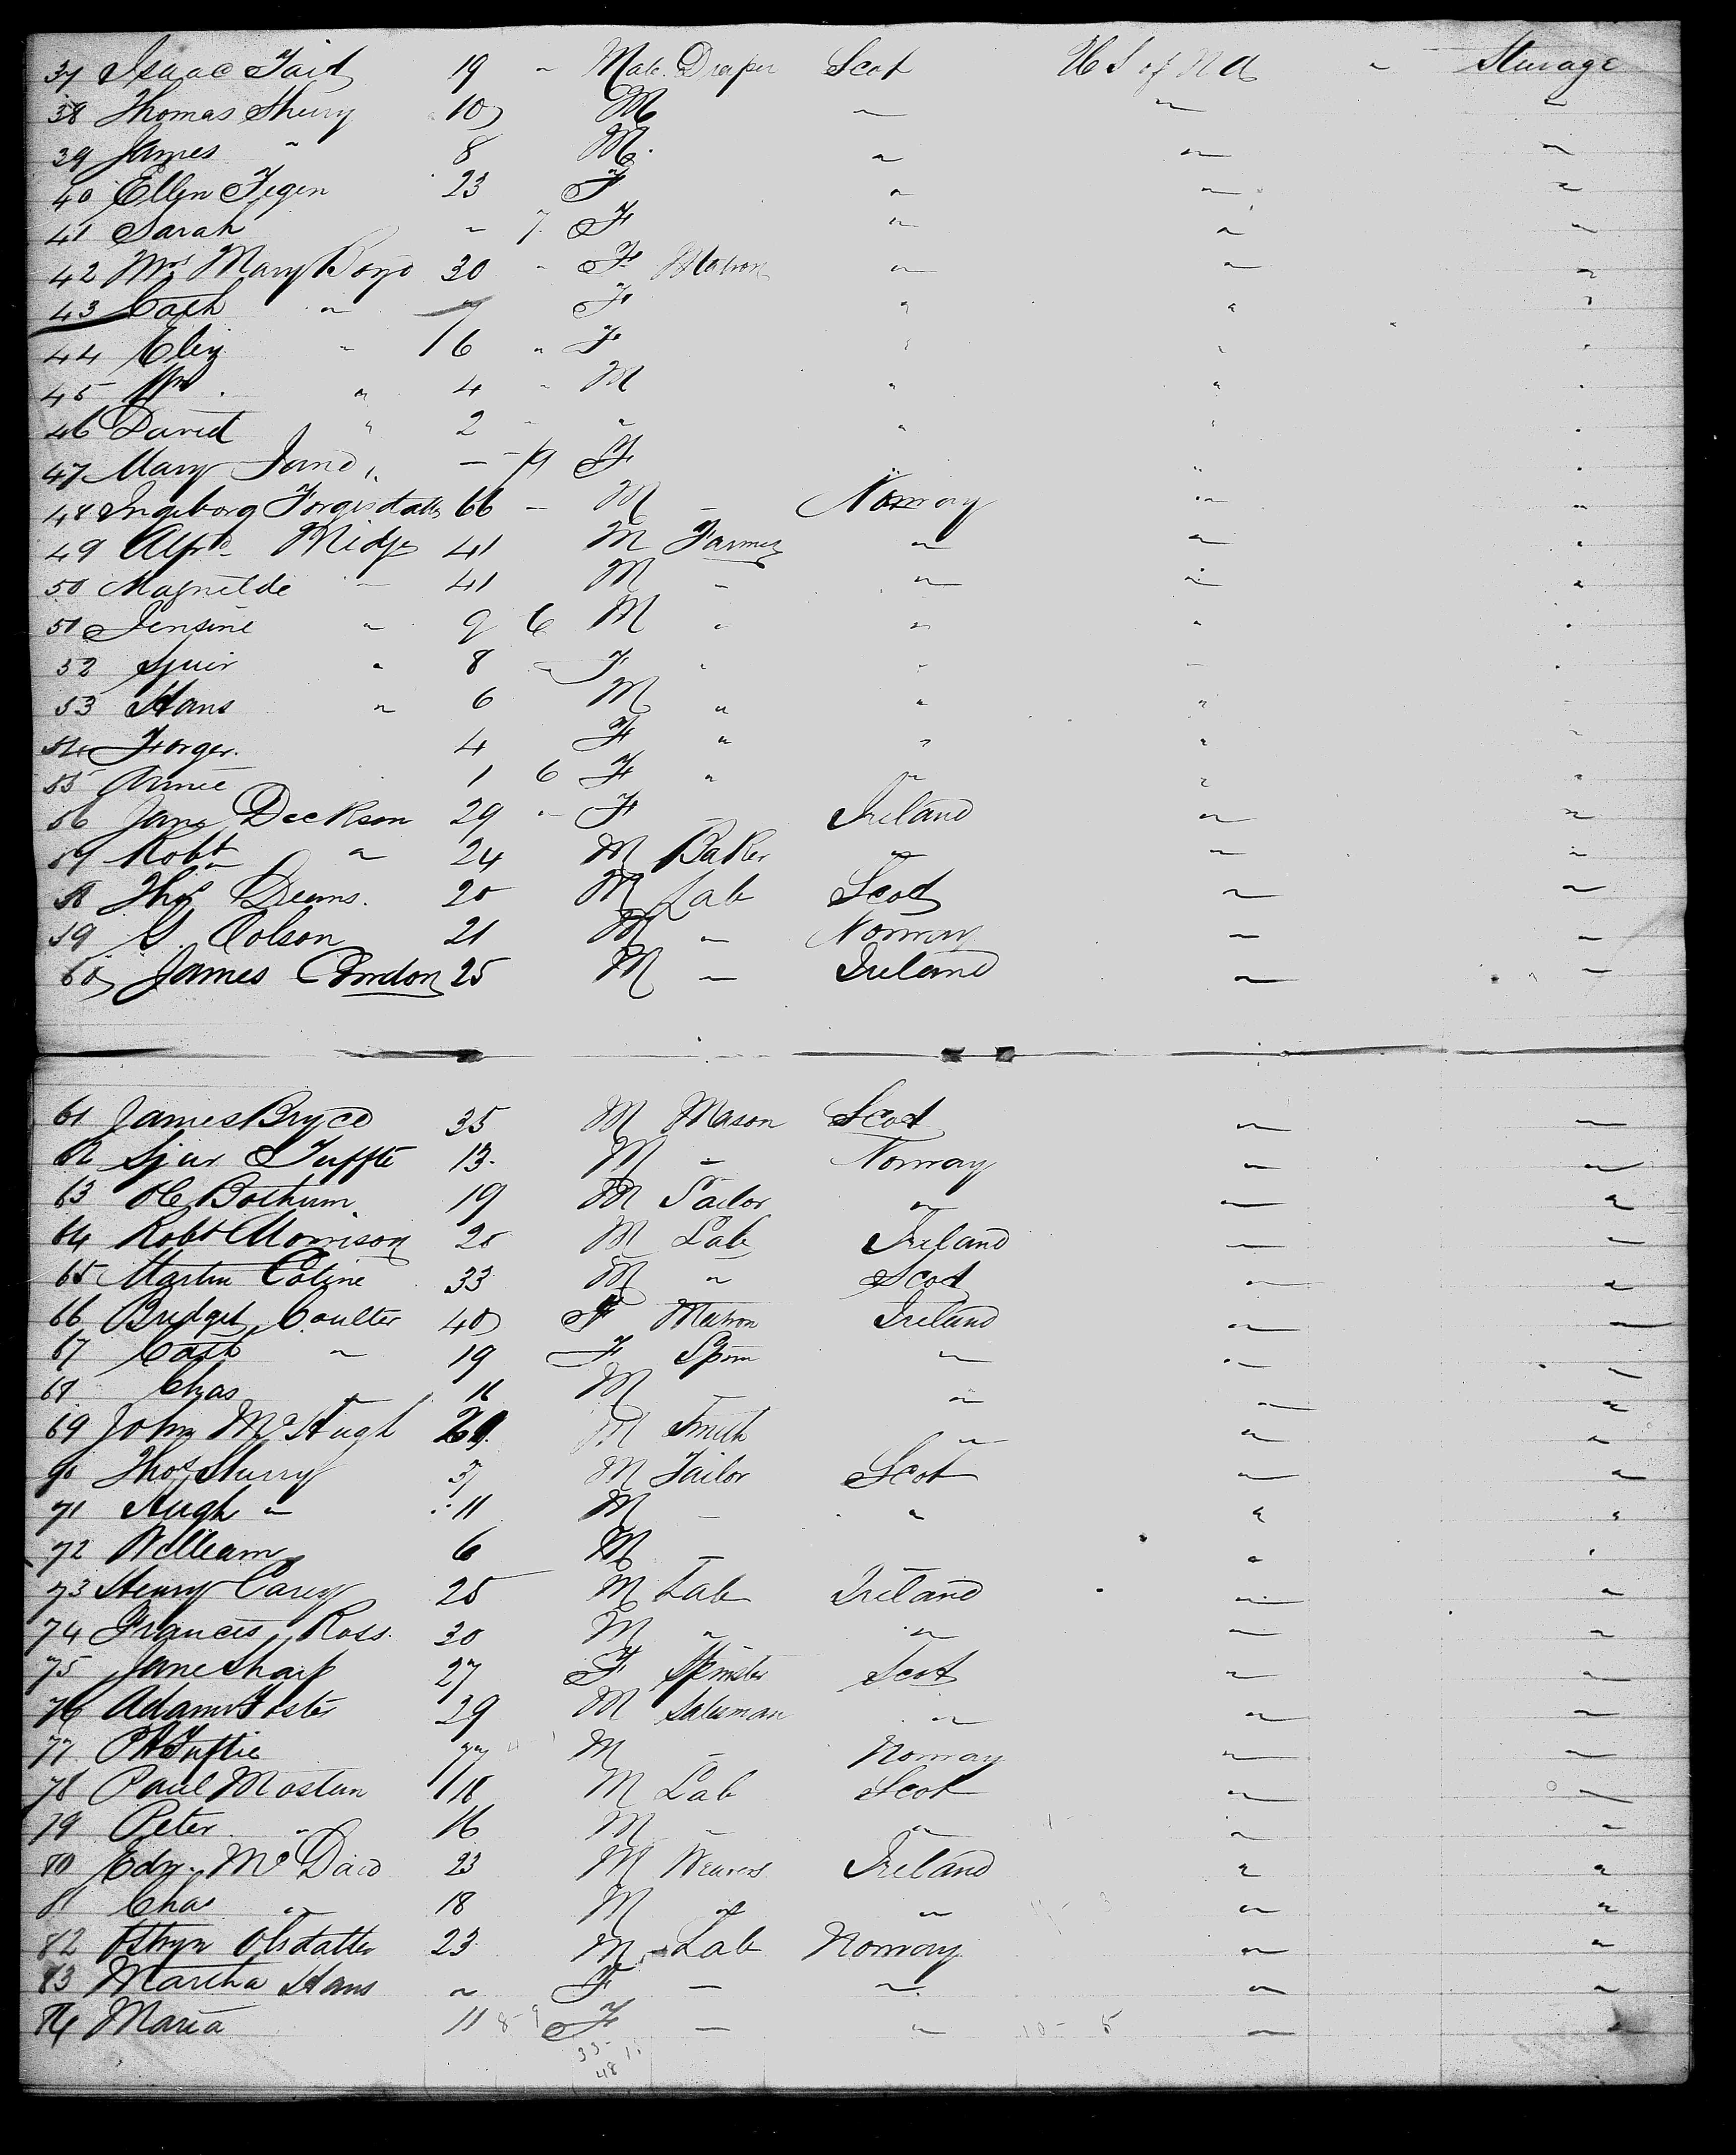 37 Isaac Tait 19 " Male Draper Scot U S of N A " Steerage
38 Thomas Sherry 10 M " " "
39 James " 8 M " " "
40 Ellen Fegen 23 F " " "
41 Sarah " 7 F " " "
42 Mrs Mary Boyd 30 " F Matron " " "
43 Cath " 7 F " " "
44 Eliz " 6 " F " " "
45 Wm " 4 " M " " "
46 David " 2 " " " " "
47 Mary Jane " — F " "
48 Ingeborg 66 — M — Norway " "
49 Alfd Midje 41 M Farmer " " "
50 Magnilde " 41 M " " " "
51 Jensine " 9 6 M " " " "
52 Sjur " 8 " F " " " "
53 Hans " 6 M " " " "
54 Torger 4 F " " " "
55 Annie 1 6 F " " " "
56 Jane Deckson 29 " F — Ireland " "
57 Robt " 24 M Baker " " "
58 Thos Deans. 20 M Lab Scot " "
59 G. Colson 21 M " Norway " "
60 James Condon 25 M — Ireland " "
61 James Bryce 35 M Mason Scot " "
62 Sjur Tuffte 13 M " Norway " "
63 Ole Bothum 19 M Sailor " " "
64 Robt Morrison 25 M Lab Ireland " "
65 Martin 33 M " Scot " "
66 Bridget Coulter 40 F Matron Ireland " "
67 Cath " 19 F Spin " " "
68 Chas 16 M " " "
69 John McHugh M Smith " " "
70 Thos Sherry 37 M Tailor Scot " "
71 Hugh " 11 M — " " "
72 William 6 M — " "
73 Henry Carey 25 M Lab Ireland " "
74 Francis Ross. 30 M " " " "
75 Jane Sharp 27 F Spinster Scot " "
76 Adam Foster 29 M Salesman " " "
77 Tuftie M — Norway " "
78 Paul Mostun 18 M Lab Scot " "
79 Peter " 16 M " " " "
80 Edw. McDaid 23 M Weavers Ireland " "
81 Chas " 18 M " " " "
82 Olsdatter 23 M Lab Norway " "
83 Martha Hans " F — " " "
84 Maria 11 F — " " "